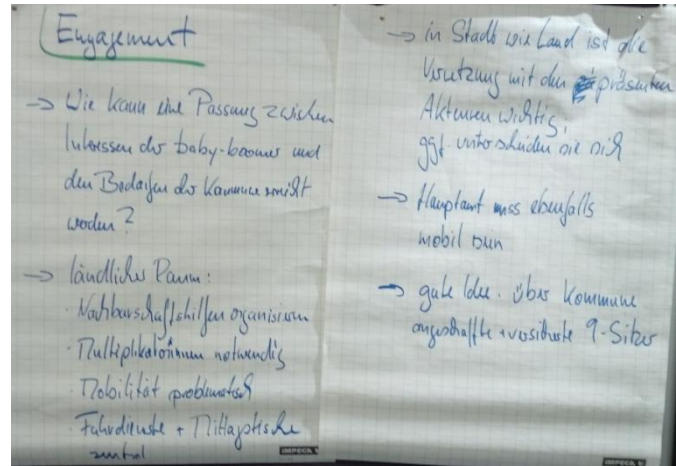 Engagement
-> Wie kann eine Passung zwischen
Interessen der baby-boomer und
den Bedarfen der Kommune erreicht
werden?
-> ländlicher Raum:
· Nachbarschaftshilfen organisieren
· Multiplikatorinnen notwendig
· Mobilität problematisch
· Fahrdienste + Mittagstische
zentral
IMPECK
-> in Stadt wie Land ist die
Vernetzung mit den präsenten
Akteuren wichtig,
ggf. unterscheiden sie sich
-> Hauptamt muss ebenfalls
mobil sein
-> gute Idee: über Kommune
angeschaffte + versicherte 9-Sitzer
IMPECK